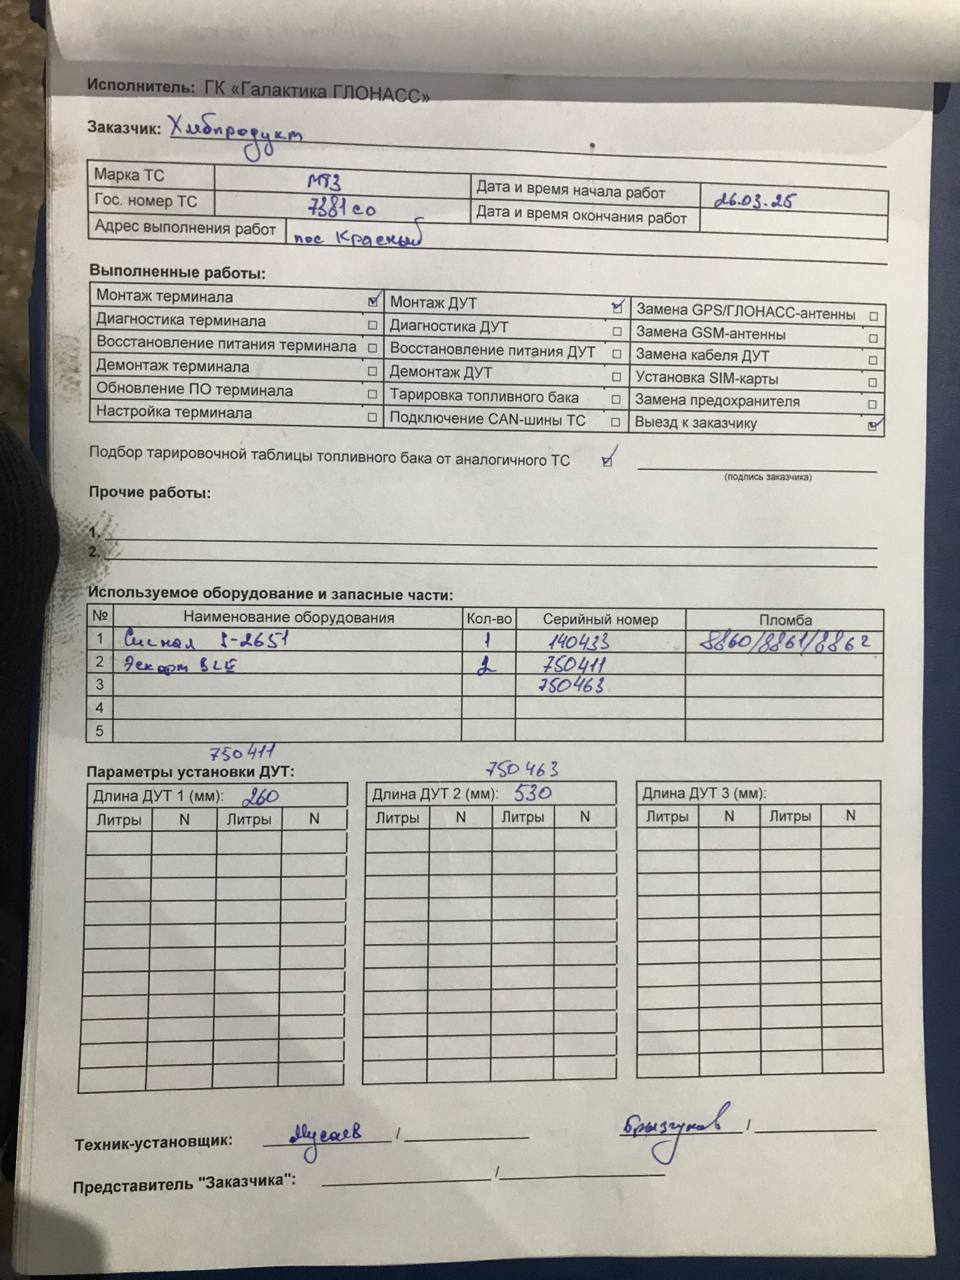 Исполнитель: ГК «Галактика ГЛОНАСС»
Заказчик: Хлебпродукт
Марка ТС МТЗ Дата и время начала работ 26.03.25
Гос. номер ТС 7381 со Дата и время окончания работ
Адрес выполнения работ пос Красный
Выполненные работы:
Монтаж терминала ☑ Монтаж ДУТ ☑ Замена GPS/ГЛОНАСС-антенны □
Диагностика терминала □ Диагностика ДУТ □ Замена GSM-антенны □
Восстановление питания терминала □ Восстановление питания ДУТ □ Замена кабеля ДУТ □
Демонтаж терминала □ Демонтаж ДУТ □ Установка SIM-карты □
Обновление ПО терминала □ Тарировка топливного бака □ Замена предохранителя □
Настройка терминала □ Подключение CAN-шины ТС □ Выезд к заказчику ☑
Подбор тарировочной таблицы топливного бака от аналогичного ТС ☑
(подпись заказчика)
Прочие работы:
1.
2.
Используемое оборудование и запасные части:
№ Наименование оборудования Кол-во Серийный номер Пломба
1 Сигнал S-2651 1 140433 8860/8861/8862
2 Эскорт BLE 2 750411
3 750463
4
5
750411 750463
Параметры установки ДУТ:
Длина ДУТ 1 (мм): 260 Длина ДУТ 2 (мм): 530 Длина ДУТ 3 (мм):
Литры N Литры N Литры N Литры N Литры N Литры N
Техник-установщик: Мусаев / Брызгунов /
Представитель "Заказчика": /